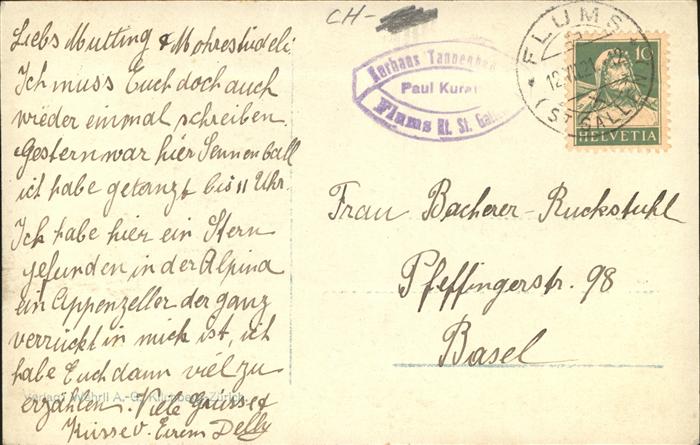 CH-
Liebs Mutting & Mohrestüdeli
Ich muss Euch doch auch
wieder einmal schreiben.
Gestern war hier Sennenball
ich habe getanzt bis 11 Uhr.
Ich habe hier ein Stern
gefunden in der Alpina
ein Appenzeller der ganz
verrückt in mich ist, ich
habe Euch dann viel zu
erzählen. Viele Grüsse &
Küsse v. Eurem Delly
Verlag Wehrli A.-G. Kilchberg-Zürich
Kurhaus Tannenb
Paul Kur
Flums Kt. St. Gallen
FLUMS
(ST. GALLEN)
10
HELVETIA
Frau Bacherer-Ruckstuhl
Pfeffingerstr. 98
Basel